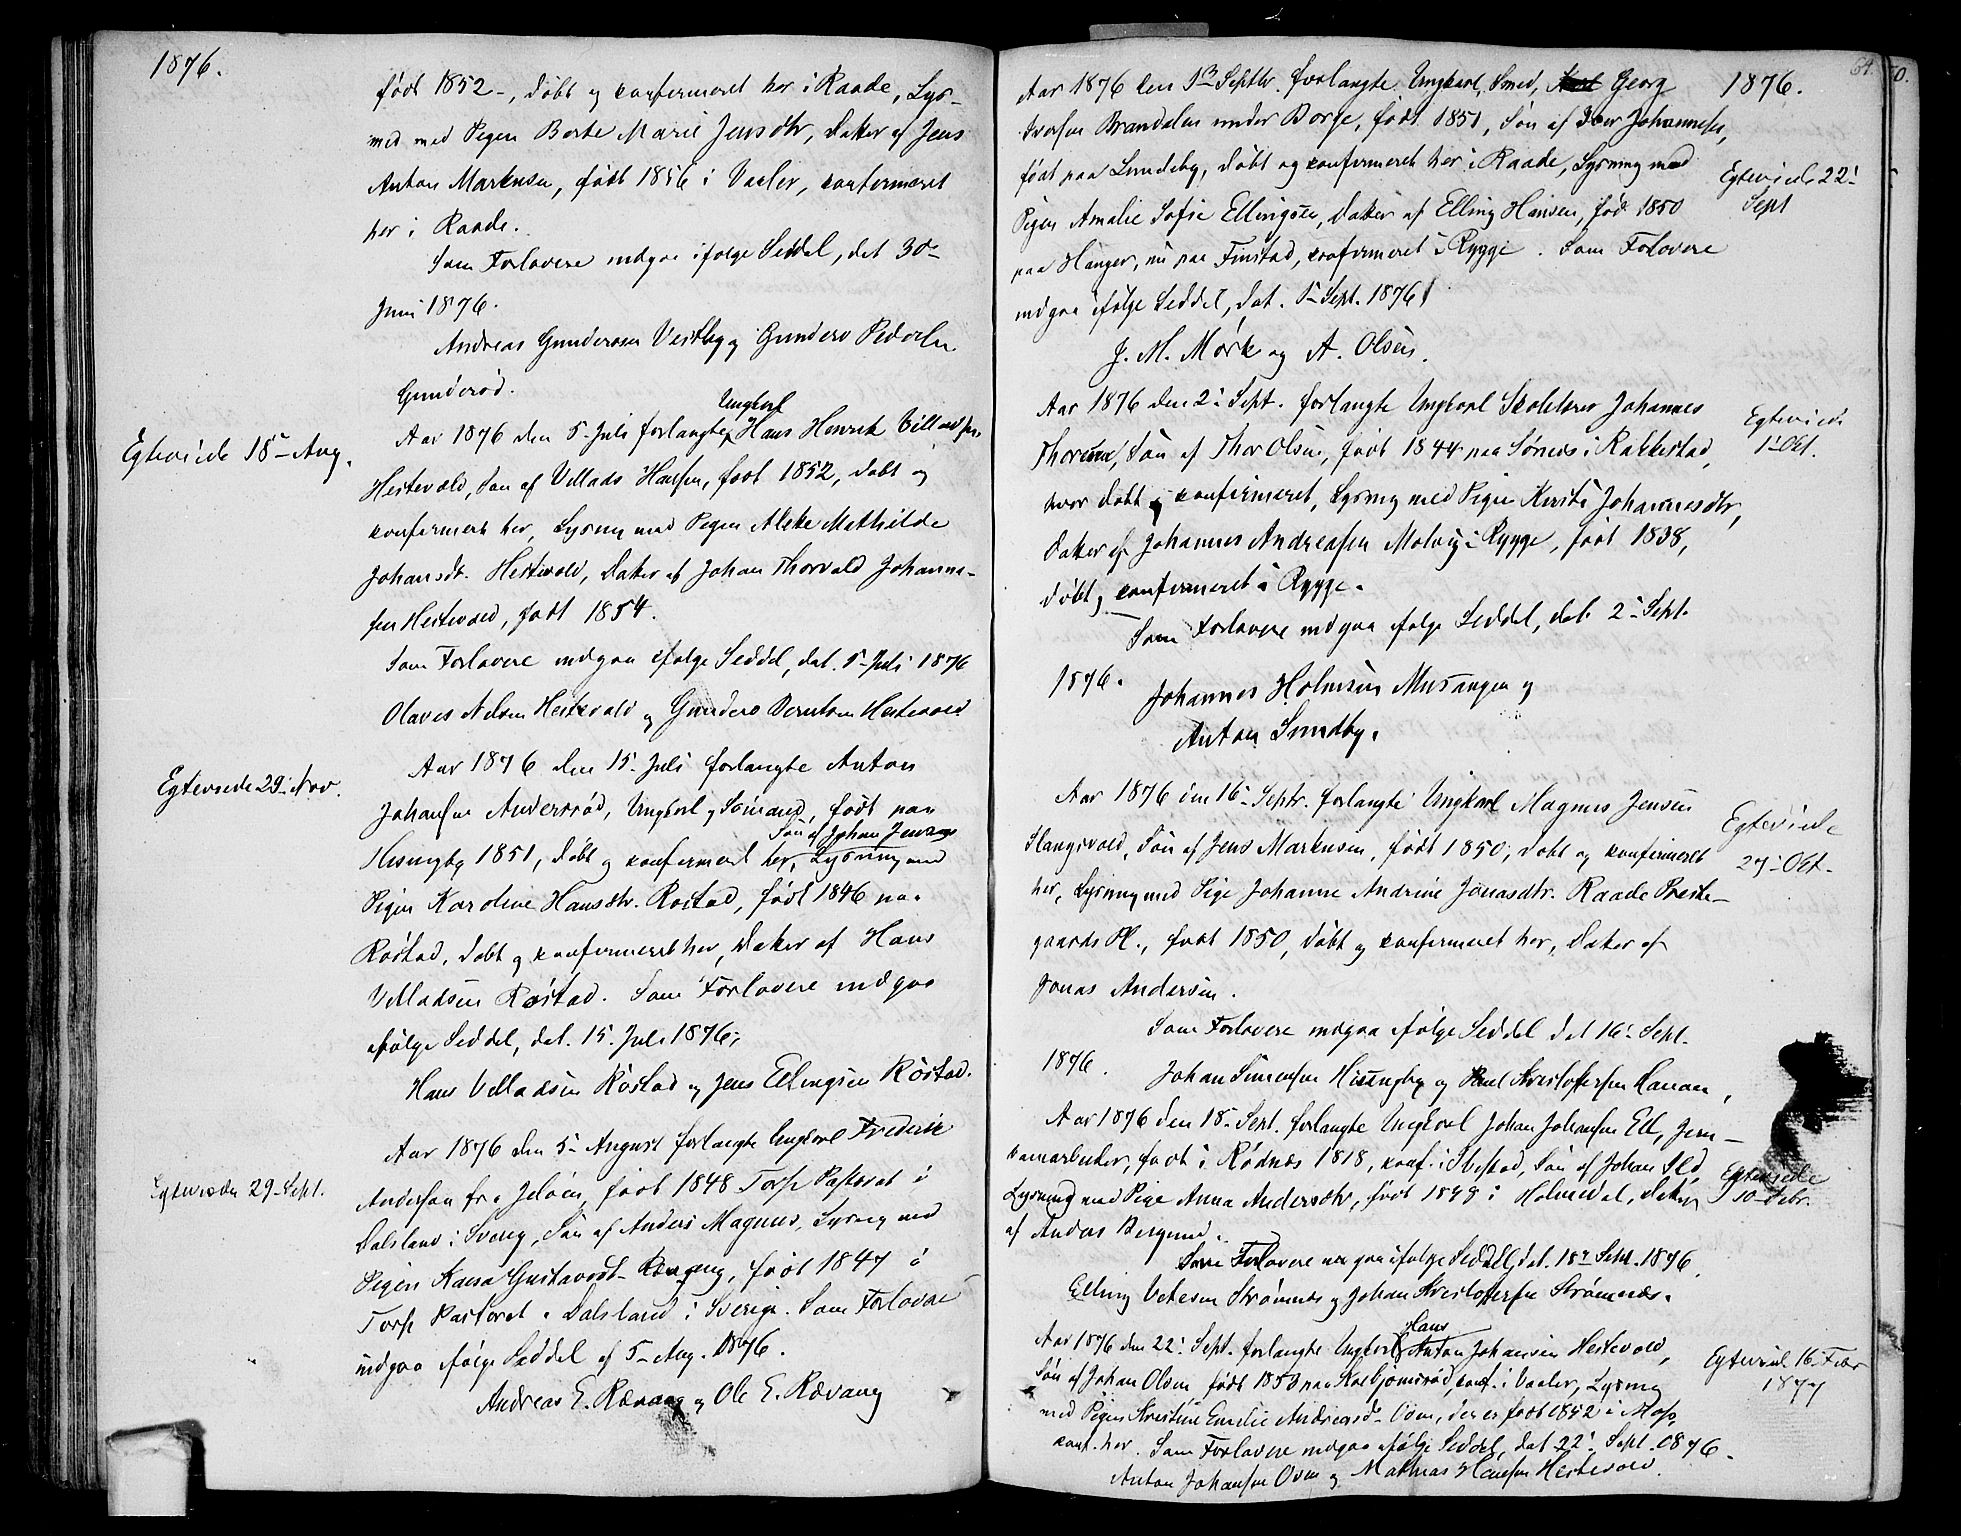 1876.
født 1852-, døbt og confirmeret her i Raade, Lys-
med Pigen Berte Marie Jensdtr, Datter af Jens
Anton Markusen, født 1856 i Vaaler, confirmeret
her i Raade.
Som Forlovere indgaa ifølge Seddel, dat 30-
Juni 1876.
Andreas Gundersen Vestby og Gunders Pedersen
Gunderød.
Egteviede 18- Aug.
Ungkarl
Aar 1876 den 5. Juli forlangte Hans Henrik Villadsen
Hestevold, Søn af Villads Hansen, født 1852, døbt og
confirmert her, Lysning med Pigen Mathilde
Johansdt. Hestevold, Datter af Johan Thorvald Johanne-
sen Hestevold, født 1854.
Som Forlovere indgaa ifølge Seddel, dat. 5- Juli 1876
Olaves Nilsen Hestevold og Gunders Berntsen Hestevold
Egteviede 29- Nov.
Aar 1876 den 15. Juli forlangte Anton
Johansen Andersrød, Ungkarl og Sømand, født paa
Søn af Johan Jensen
1851, døbt og confirmeret her, Lysning med
Pigen Karoline Hansdtr. Røstad, født 1846 paa
Røstad, døbt og confirmeret her, Datter af Hans
Villadsen Røstad. Som Forlovere indgaa
ifølge Seddel, dat. 15. Juli 1876;
Hans Villadsen Røstad og Jens Ellingsen Røstad.
Egteviede 29- Sept.
Aar 1876 den 5- August forlangte Ungkarl Frederik
Anderson fra Jeløen, født 1848 Torp Pastorat i
Dalsland i Sverig, Søn af Anders Magnus, Lysning med
Pigen Kaisa Gustavsdt- Rævang, født 1847 i
Torp Pastorat i Dalsland i Sverige. Som Forlovere
indgaa ifølge Seddel af 5- Aug. 1876.
Andreas E. Rævang og Ole E. Rævang
1876.
Aar 1876 den 1ste Septbr. forlangte Ungkarl, Smed, Georg
Iversen Brandalen under Borge, født 1851, Søn af Iver Johannesen,
født paa Lundeby, døbt og confirmeret her i Raade, Lysning med
Pigen Amalie Sofie Ellingsen, Datter af Elling Hansen, fød 1850
paa Hanger, nu paa Finstad, confirmeret i Rygge. Som Forlovere
indgaa ifølge Seddel, dat. 1- Sept. 1876
J. M. Mørk og A. Olsen.
Egteviede 22-
Sept
Aar 1876 den 2- Sept. forlangte Ungkarl Skolelærer Johannes
Thoresen, Søn af Thor Olsen, født 1844 paa i Rakkestad,
hvor døbt og confirmeret, Lysning med Pigen Kersti Johannesdtr,
Datter af Johannes Andreasen Molvig i Rygge, født 1838,
døbt og confirmeret i Rygge.
Som Forlovere indgaa ifølge Seddel, dat. 2- Sept.
1876.
Johannes Holmsen og
Anton Lundby.
Egteviede
1- Okt.
Aar 1876 den 16- Septr. forlangte Ungkarl Magnus Jensen
Slangsvold, Søn af Jens Markusen, født 1850, døbt og confirmeret
her, Lysning med Pige Johanne Andrine Jonasdtr. Raade Preste-
gaards Pl., født 1850, døbt og confirmeret her, Datter af
Jonas Andersen.
Som Forlovere indgaa ifølge Seddel dat 16- Sept.
1876.
Johan Simensen og Kristoffersen
Egteviede
27- Okt.
Aar 1876 den 18- Sept. forlangte Ungkarl Johan Johansen Eld, Jern-
banearbeider, født i Rødnes 1818, conf. i Ibestad, Søn af Johan Eld,
Lysning med Pige Anna Andersdtr, født 1849 i Holmedal, Datter
af Anders
Som Forlovere indgaa ifølge Seddel, dat. 18- Sept. 1876
Elling Strømnes og Johan Kristoffersen Strømnæs.
Egteviede
10- Febr.
Hans
Aar 1876 den 22- Sept. forlangte Ungkarl Anton Johansen Hestevold,
Søn af Johan Olsen, født 1850 paa Kolbjørnsrød, conf. i Vaaler, Lysning
med Pigen Kristine Emelie Andreasdt- Oven, der er født 1852 i Moss,
conf. her. Som Forlovere indgaa ifølge Seddel, dat 22- Sept. 1876.
Anton Johansen Oven og Mathias Hansen Hestevold.
Egteviede 16- Febr
1877